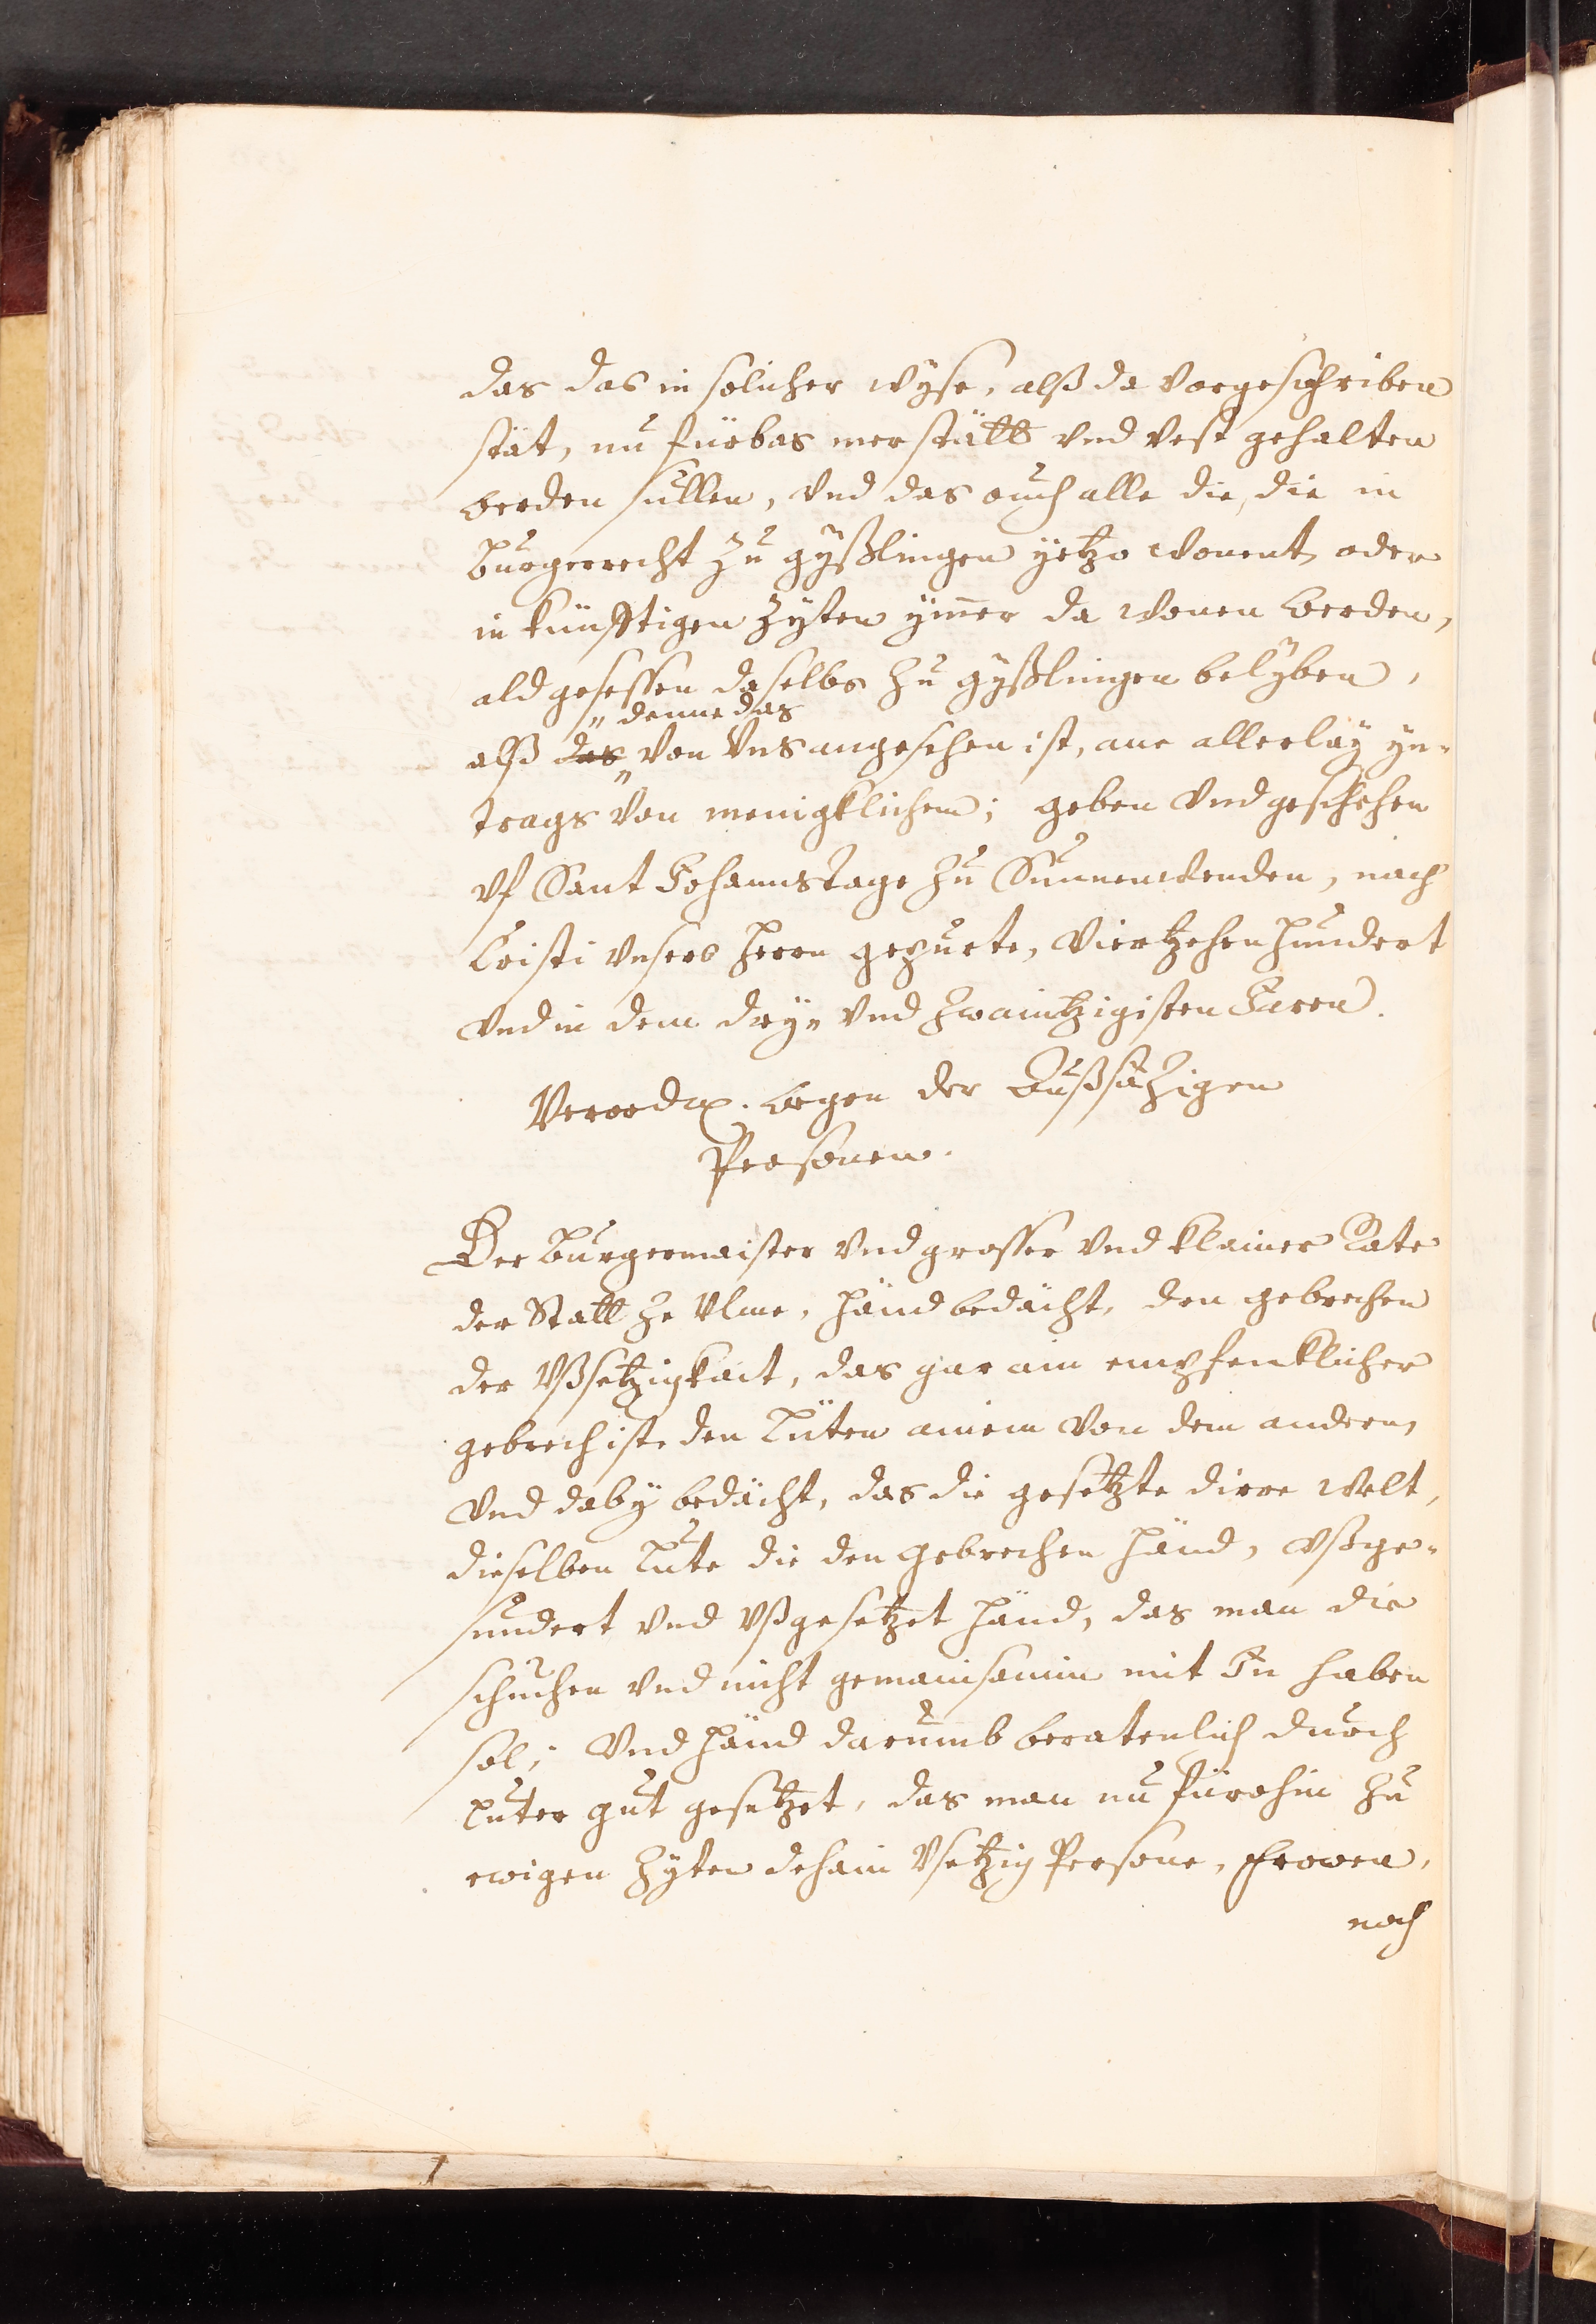 das das in solicher wyse, alß da vorgeschriben
stät, nu fürbas mer stätt vnd vest gehalten
werden süllen, vnd das ouch alle die, die in
Burgerrecht zu gyßlingen yetzo wonent, oder
in künfftigen zyten ymer da wonen werden,
ald gesessen daselbs zu gyßlingen belyben,
denne das
alß das von vns angesehen ist, ane allerläy yn-
trags von menigklichem; geben vnd geschehen
vf Sant Johannstage zu Sunnenwenden, nach
Cristi vnsers herrn gepurte, viertzehenhundert
vnd in dem dry- vnd zwaintzigisten Jaren.
Verordn. wegen der Außsätzigen
Personen.
Der Burgermaister vnd grosser vnd klainer Rate
der Statt ze Vlme, händ bedächt, den gebrechen
der vßsetzigkait, das gar ain empfenklicher
gebrech ist, den Lüten ainem von dem andern,
vnd daby bedächt, das die gesetzte dirre welt,
dieselben Lute die den gebrechen händ, vßge-
sundert vnd vßgesetzet händ, das man die
schuchen vnd nicht gemainsamin mit In haben
sol; vnd händ darumb beratenlich durch
luter gut gesetzet, das man nu fürohin zu
ewigen zyten dehain vsetzig Persone, frowen,
noch